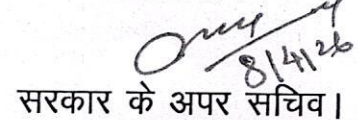 8/4/26
सरकार के अपर सचिव।